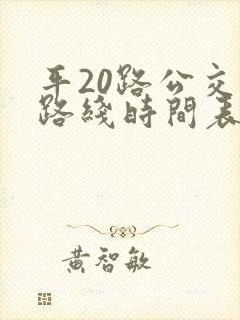 平20路公交
路綫時間表
黃智敏